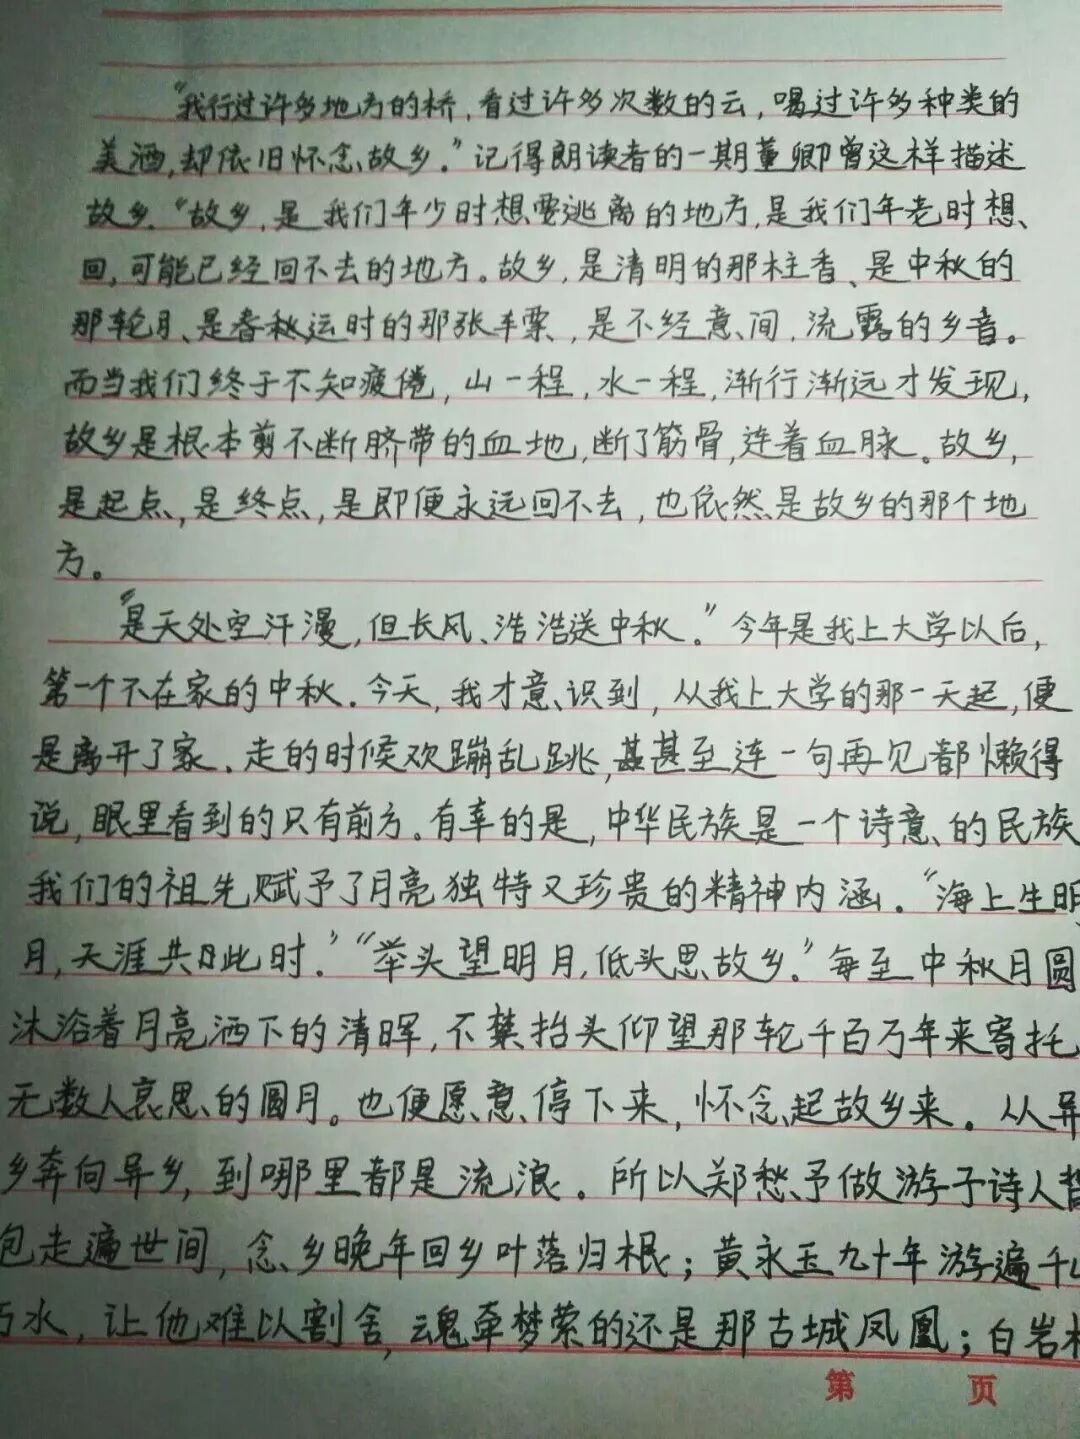 “我行过许多地方的桥,看过许多次数的云,喝过许多种类的
美酒,却依旧怀念故乡。”记得朗读者的一期董卿曾这样描述
故乡.“故乡,是我们年少时想要逃离的地方,是我们年老时想
回,可能已经回不去的地方。故乡,是清明的那柱香、是中秋的
那轮月、是春秋运时的那张车票、是不经意间,流露的乡音。
而当我们终于不知疲倦,山一程,水一程,渐行渐远才发现,
故乡是根本剪不断脐带的血地,断了筋骨,连着血脉。故乡,
是起点,是终点,是即便永远回不去,也依然是故乡的那个地
方。
“是天处空汗漫,但长风、浩浩送中秋。”今年是我上大学以后,
第一个不在家的中秋.今天,我才意识到,从我上大学的那一天起,便
是离开了家.走的时候欢蹦乱跳,甚甚至连一句再见都懒得
说,眼里看到的只有前方。有幸的是,中华民族是一个诗意的民族
我们的祖先赋予了月亮独特又珍贵的精神内涵.“海上生明
月,天涯共此时.’“举头望明月,低头思故乡.’每至中秋月圆
沐浴着月亮洒下的清晖,不禁抬头仰望那轮千百万年来寄托
无数人哀思的圆月。也便愿意停下来,怀念起故乡来.从异
乡奔向异乡,到哪里都是流浪.所以郑愁予做游子诗人
包走遍世间,念乡晚年回乡叶落归根;黄永玉九十年游遍千山
万水,让他难以割舍,魂牵梦萦的还是那古城凤凰;白岩松
第 页